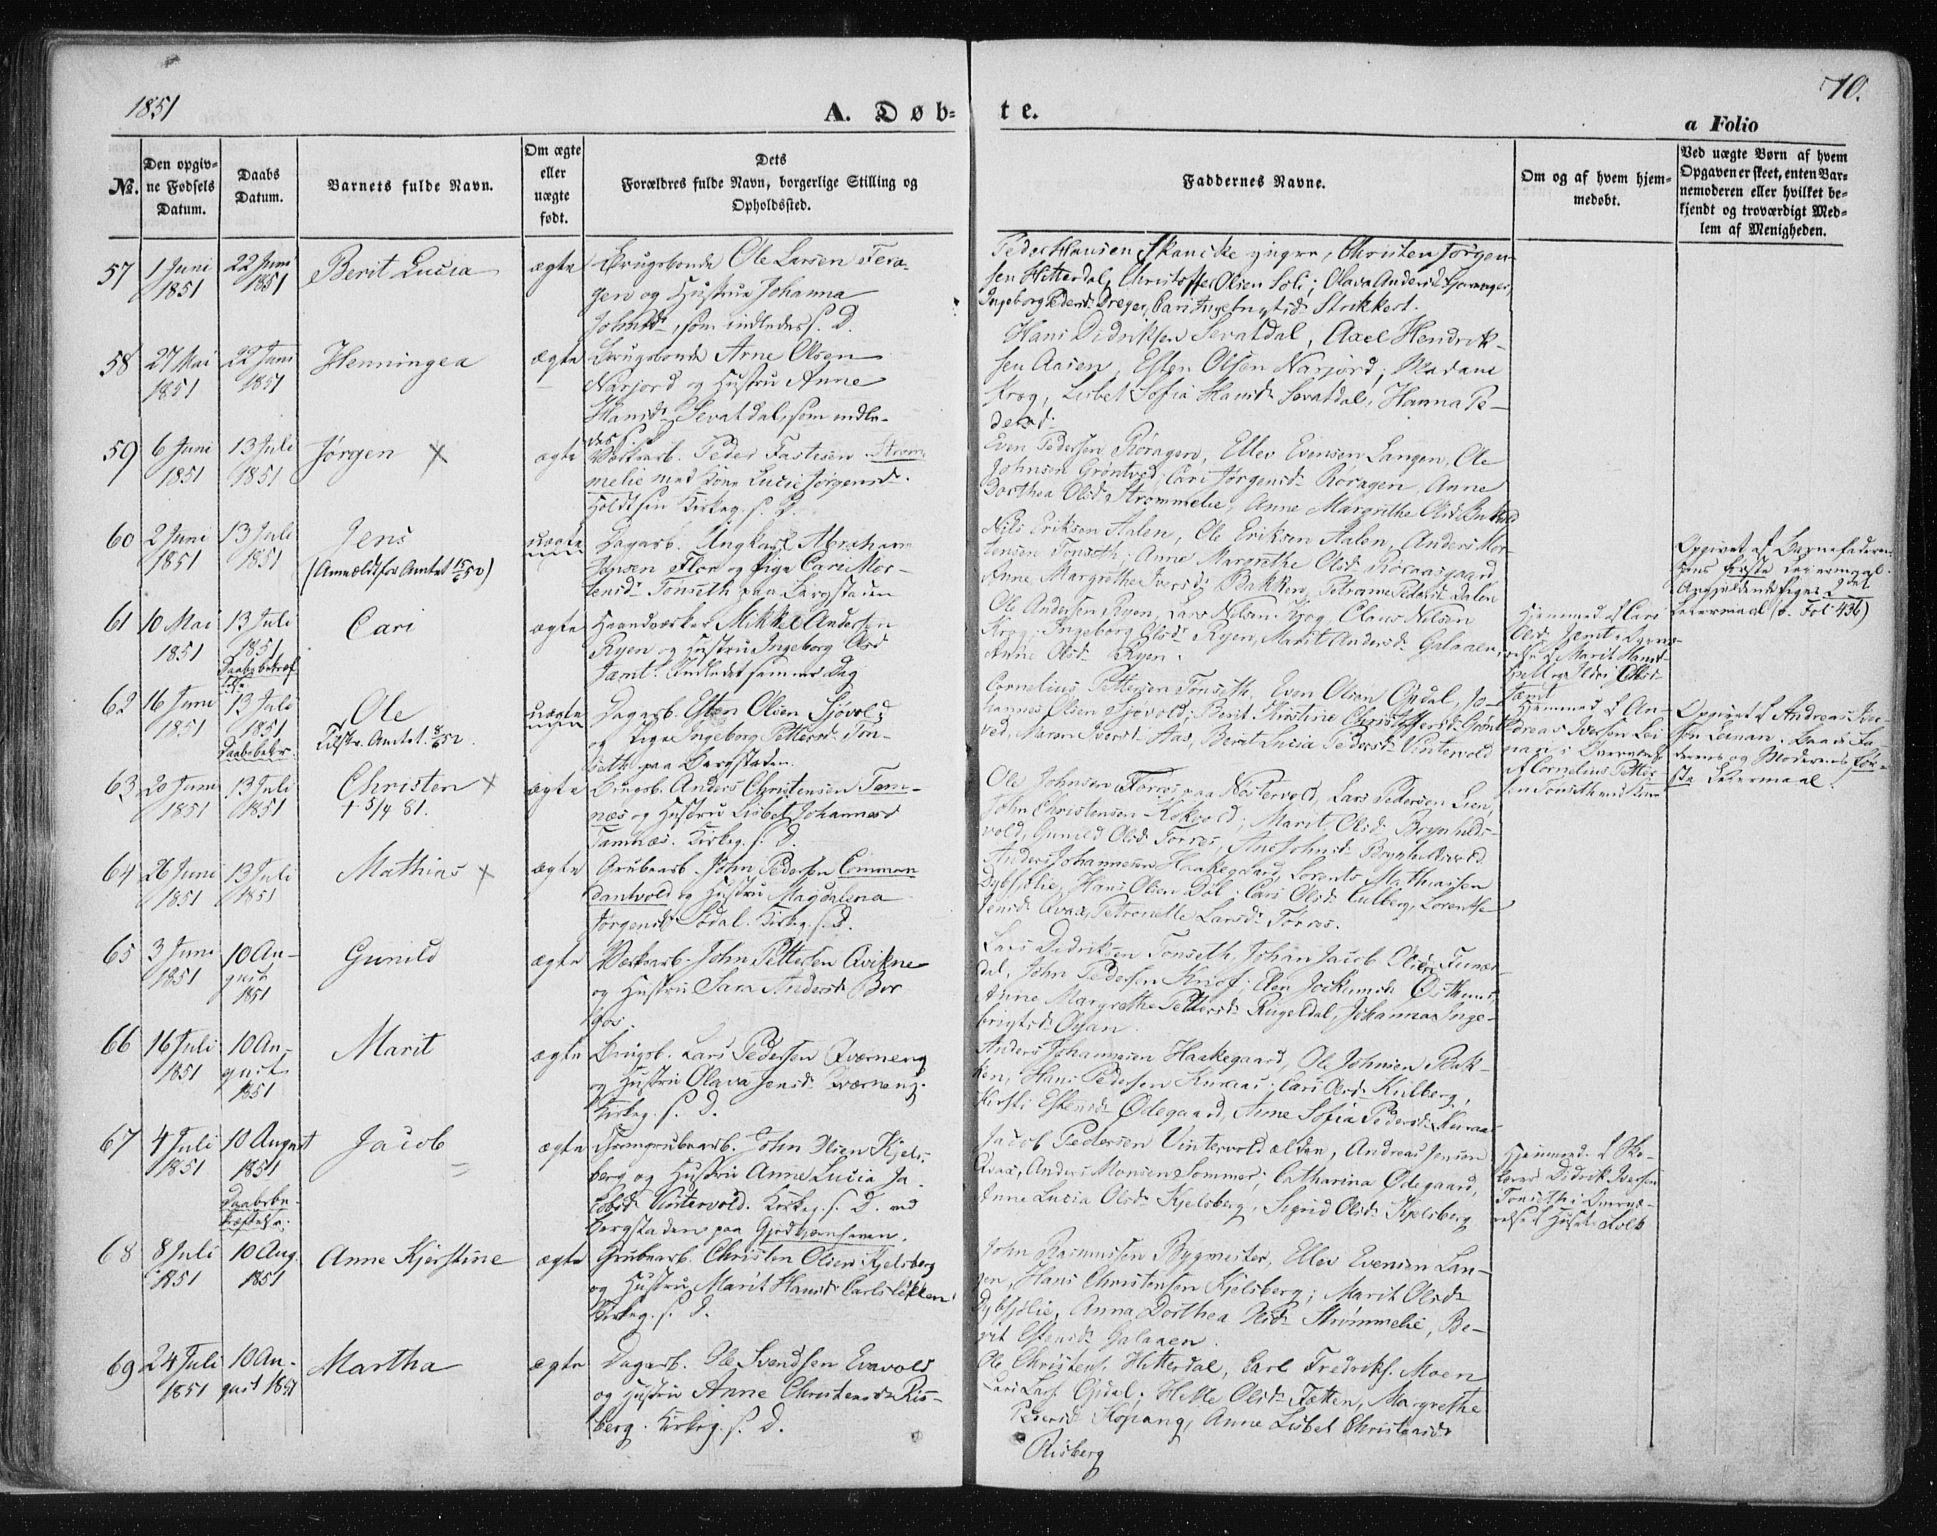 1851
A. Døb-
te.
70.
a Folio
No.
Den opgiv-
ne Fødsels
Datum.
Daabs
Datum.
Barnets fulde Navn.
Om ægte
eller
uægte
født.
Dets
Forældres fulde Navn, borgerlige Stilling og
Opholdssted.
Faddernes Navne.
Om og af hvem hjem-
medøbt.
Ved uægte Børn af hvem
Opgaven er skeet, enten Bar-
nemoderen eller hvilket be-
kjendt og troværdigt Med-
lem af Menigheden.
57
1 Juni
1851
22 Juni
1851
Berit Lucia
ægte
Brugsbonde Ole Larsen Fera-
gen og Hustrue Johanna
Johnsdr, som indledes s. D.
Peder Hansen Skancke yngre, Christen Jørgen-
sen Hitterdal, Christoffer Olsen Soli; Olava Andersd.
Ingeborg Pedersd. Dreyer, Cari
58
27 Mai
1851
22 Juni
1851
Henningea
ægte
Brugsbonde Arne Olsen
Narjord og Hustru Anne
Hansdr Sevatdal, som indle-
des s. D.
Hans Didriksen Sevatdal, Axel Hendrik-
sen Aasen, Esten Olsen Narjord; Madame
Krog, Lisbet Sofia Hansdr Sevatdal, Hanna Pe-
dersd.
59
6 Juni
1851
13 Juli
1851
Jørgen ×
ægte
Værksarb. Peder Fastesen Strøm-
melie med Kone Lucie Jørgensd.
Holdtsen Kirkeg. s. D.
Even Pedersen Røragen, Ellev Evensen Langen, Ole
Johnsen Grøntvæd; Cari Jørgensdr Røragen, Anne
Dorthea Olsdr Strømmelie, Anne Margrethe Olsd.
60
2 Juni
1851
13 Juli
1851
Jens
(Anmeldt for Amtet
uægte
Dagarb. Ungkarl Abraham
Jensen Flor og Pige Cari Mor-
tensdr Tønseth paa Bergstaden
Nils Eriksen Aalen, Ole Eriksen Aalen, Anders Mor-
tensen Tonseth; Anne Margrethe Olsdr Røraasgaard,
Anne Margrethe Iversdr Bakken, Petrame Pedersdr Dalen
Opgivet af Barnefaderen.
Hans første Leiermaal.
Angjældende Piges 2det
Leiermaal (s. Fol 436)
61
10 Mai
1851
13 Juli
1851
Daabsbekræf-
telse
Cari
ægte
Haandværker Mikkel Andersen
Ryen og Hustru Ingeborg Olsd
Jamt. Indledet samme Dag
Ole Andersen Ryen, Lars Nilsen Krog, Claus Nilsen
Krog; Ingeborg Olsdr Ryen, Marit Andersdr Galaaen,
Anne Olsdr Ryen.
Hjemmed. af Cari
Olsdr Jamt i Overvæ-
relse af Marit
og Ildri Olsdr
Jamt
62
16 Juni
1851
13 Juli
1851
Daabsbekr.
Ole
Tilstr. Amtet
uægte
Dagarb. Esten Olsen Sjøvold
og Pige Ingeborg Pettersdr Tøn-
seth paa Bergstaden.
Cornelius Pettersen Tonseth, Even Olsen Opdal, Jo-
hannes Olsen Sjøvold; Berit Kirstine Christoffersdr Grønt-
væd, Maren Iversdr Aas, Berit Lucia Pedersdr Vintervold
Hjemmed. af An-
dreas Iversen Lei-
nan i Overværelse
af Cornelius Petter-
sen Tonseth
Opgivet af Andreas Iver-
sen Leinan. Baade Fa-
derens og Moderens før-
ste Leiermaal.
63
20 Juni
1851
13 Juli
1851
Christen ×
† 5/4 81.
ægte
Brugsb. Anders Christensen Tam-
næs og Hustru Lisbet Johannesd
Tamnæs. Kirkeg. s. D.
Ole Johnsen Torres paa Nestervold, Lars Pedersen Lien,
John Christensen Kokvold; Marit Olsdr Brynhilds-
vold, Gunild Olsdr Torres, Ane Johnsdr Brynhildsvold
64
26 Juni
1851
13 Juli
1851
Mathias ×
ægte
Grubearb. John Pedersen Comman-
dantvold og Hustru Magdalena
Jørgensdr Sødal. Kirkeg. s. D.
Anders Johannesen Haakegaard, Lorents Mathiasen
Dybsjølie, Hans Olsen Døl; Cari Olsdr Culberg, Lorentse
Jensdr Avas, Petronelle Larsdr Torres.
65
3 Juni
1851
10 Au-
gust
1851
Gunild
ægte
Værksarb. John Pettersen Qvikne
og Hustru Sara Andersdr Bor-
gos.
Lars Didriksen Tonseth, Johan Jacob Olsen Funæs-
dal, John Pedersen Knof; Elen Jockumsdr
Anne Margrethe Pettersdr Rugeldal, Johanna Inge-
brigtsdr Osan.
66
16 Juli
1851
10 Au-
gust
1851
Marit
ægte
Brugsb. Lars Pedersen Qværneng
og Hustru Olava Jensdr Kværneng.
Kirkeg. s. D.
Anders Johannesen Haakegaard, Ole Johnsen Bak-
ken, Hans Pedersen Kuraas; Cari Olsdr Kulberg,
Kirsti Estensdr Ødegaard, Anne Sofia Pedersdr Kuraas
67
4 Juli
1851
10 August
1851
Daabsbe-
kræftelse.
Jacob
ægte
Grubearb. John Olsen Kjels-
berg og Hustru Anne Lucia Ja-
cobsdr Vintervold. Kirkeg. s. D. ved
Bergstaden paa Gjedbjørnhaven.
Jacob Pedersen Vintervold ælden, Andreas Jensen
Avas, Anders Monsen Sommer; Catharina Ødegaard,
Anne Lucia Olsdr Kjelsberg, Sigrid Olsdr Kjelsberg
Hjemmed. af Sko-
lærer Didrik Iversen
Tonseth i Overvæ-
relse af Huset Folk
68
8 Juli
1851
10 Aug.
1851
Anne Kjerstine
ægte
Grubearb. Christen Olsen Kjelsberg
og Hustru Marit Hansdr Carlsløkken
Kirkeg. s. D.
John Rasmussen Bygmester, Ellev Evensen Lan-
gen, Hans Christensen Kjelsberg; Marit Olsdr
Dybsjølie, Anna Dorthea Olsdr Strømmelie, Be-
rit Estensdr Galaaen.
69
24 Juli
1851
10 Au-
gust 1851
Martha
ægte
Dagarb. Ole Svendsen Evavold
og Hustru Anne Christensdr Ris-
berg. Kirkeg. s. D.
Ole Christens. Hitterdal, Carl Fredriks. Moen
Lars Lars. Opdal; Helle Olsdr Tetten, Margrethe
Pedersdr Kopang, Anne Lisbet Christensdr
Risberg